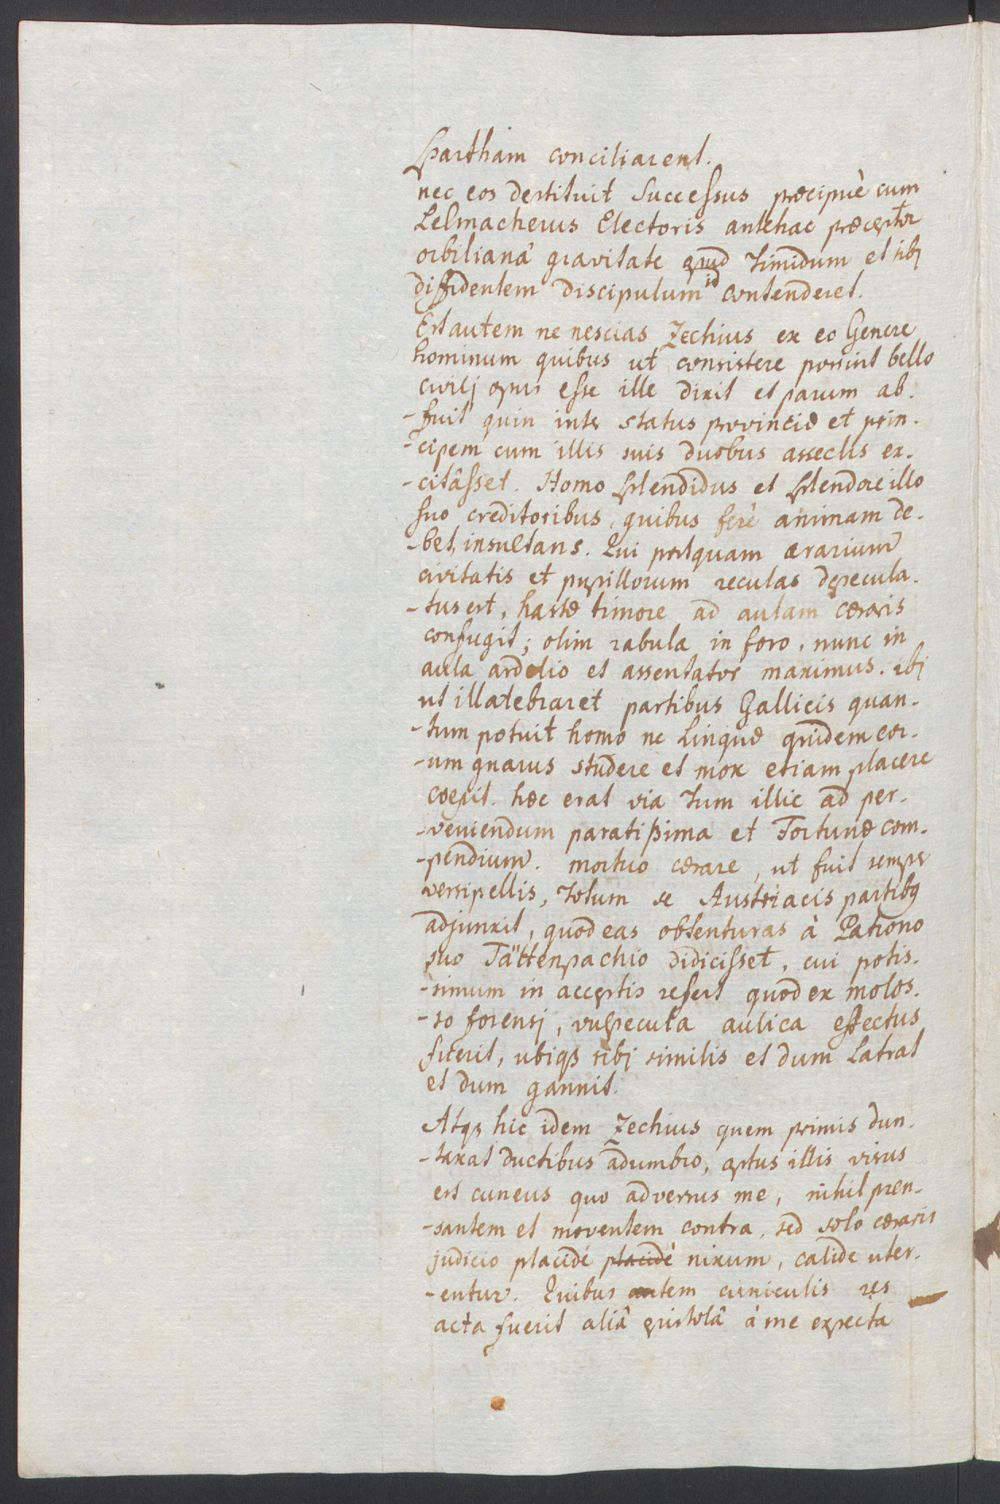 Spartham conciliarent.
nec eos destituit Successus præcipuè cum
Lelmacherus Electoris antehac præceptor
orbilianâ gravitate apud timidum et sibj
diffidentem discipulum id contenderet.
Est autem ne nescias Zechius ex eo Genere
hominum quibus ut consistere possint bello
civilj opus esse ille dixit et parum ab-
-fuit quin inter status provinciæ et prin-
-cipem cum illis suis duobus asseclis ex-
-citâsset. Homo Splendidus et Splendore illo
suo creditoribus, quibus ferè animam de-
-bet, insultans. Qui postquam ærarium
civitatis et pupillorum reculas depecula-
-tus est, hastæ timore ad aulam cæsaris
confugit; olim rabula in foro, nunc in
aula ardelio et assentator maximus. ibj
ut illatebraret partibus Gallicis quan-
-tum potuit homo ne Linguæ quidem eor-
-um gnarus studere et mox etiam placere
coepit. hæc erat via tum illic ad per-
-veniendum paratißima et Fortunæ com-
-pendium. mortuo cæsare, ut fuit semper
versipellis, totum se Austriacis partibq
adjunxit, quod eas obtenturas à Patrono
suo Tättenpachio didicisset, cui potis-
-simum in acceptis refert quod ex molos-
-so forensj, vulpecula aulica effectus
fuerit, ubiqz sibj similis et dum Latrat
et dum gannit.
Atqz hic idem Zechius quem primis dun-
-taxat ductibus adumbro, aptus illis visus
est cuneus quo adversus me, nihil pren-
-santem et moventem contra, sed solo cæsaris
judicio placidè placidè nixum, calide uter-
-entur. Quibus autem cuniculis res
acta fuerit aliâ epistolâ à me expecta